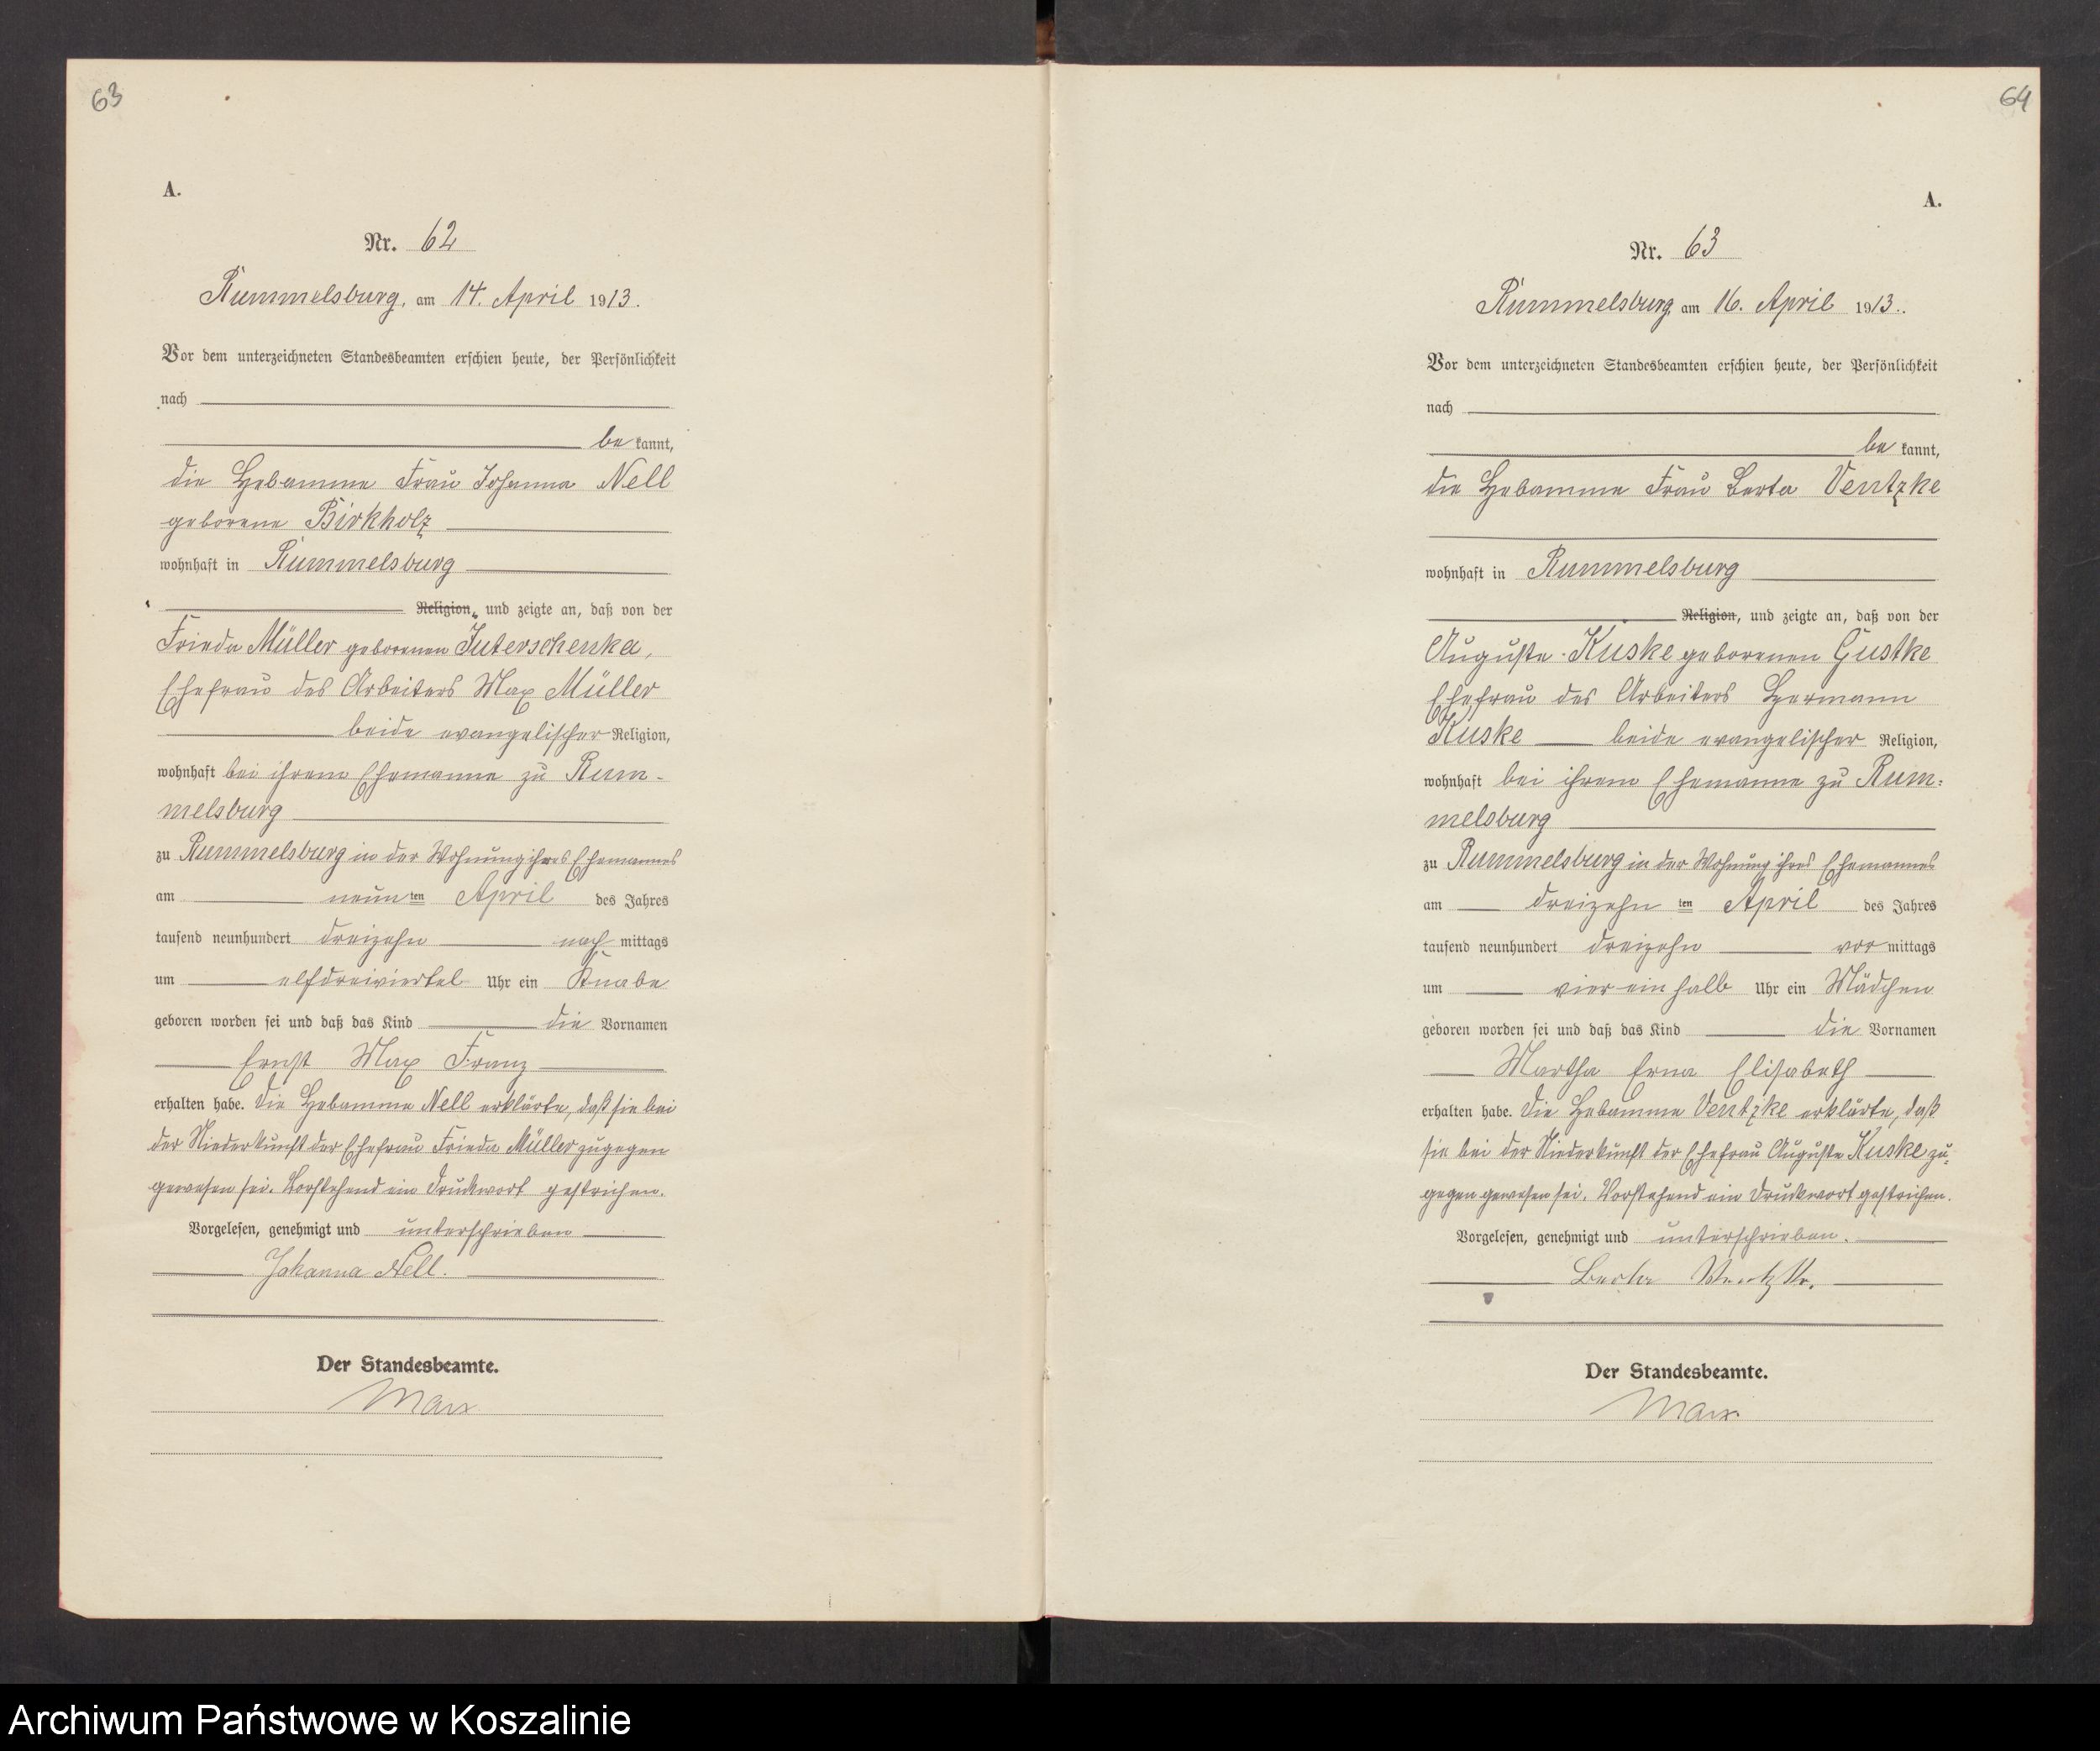 63
A.
Nr. 62
Rummelsburg, am 14. April 1913.
Vor dem unterzeichneten Standesbeamten erschien heute, der Persönlichkeit
nach
be kannt,
die Hebamme Frau Johanna Nell
geborene Birkholz
wohnhaft in Rummelsburg
Religion, und zeigte an, daß von der
Frieda Müller geborenen Juterschenka,
Ehefrau des Arbeiters Max Müller
beide evangelischer Religion,
wohnhaft bei ihrem Ehemanne zu Rum-
melsburg
zu Rummelsburg in der Wohnung ihres Ehemannes
am neunten April des Jahres
tausend neunhundert dreizehn nach mittags
um elfdreiviertel Uhr ein Knabe
geboren worden sei und daß das Kind die Vornamen
Ernst Max Franz
erhalten habe. Die Hebamme Nell erklärte, daß sie bei
der Niederkunft der Ehefrau Frieda Müller zugegen
gewesen sei. Vorstehend ein Druckwort gestrichen.
Vorgelesen, genehmigt und unterschrieben
Johanna Nell.
Der Standesbeamte.
Marx
64
A.
Nr. 63
Rummelsburg, am 16. April 1913.
Vor dem unterzeichneten Standesbeamten erschien heute, der Persönlichkeit
nach
be kannt,
die Hebamme Frau Berta Ventzke
wohnhaft in Rummelsburg
Religion, und zeigte an, daß von der
Auguste Kuske geborenen Gustke
Ehefrau des Arbeiters Hermann
Kuske beide evangelischer Religion,
wohnhaft bei ihrem Ehemanne zu Rum=
melsburg
zu Rummelsburg in der Wohnung ihres Ehemannes
am dreizehn ten April des Jahres
tausend neunhundert dreizehn vor mittags
um vier ein halb Uhr ein Mädchen
geboren worden sei und daß das Kind die Vornamen
Martha Erna Elisabeth
erhalten habe. Die Hebamme Ventzke erklärte, daß
sie bei der Niederkunft der Ehefrau Auguste Kuske zu=
gegen gewesen sei. Vorstehend ein Druckwort gestrichen.
Vorgelesen, genehmigt und unterschrieben.
Berta Ventzke.
Der Standesbeamte.
Marx
Archiwum Państwowe w Koszalinie